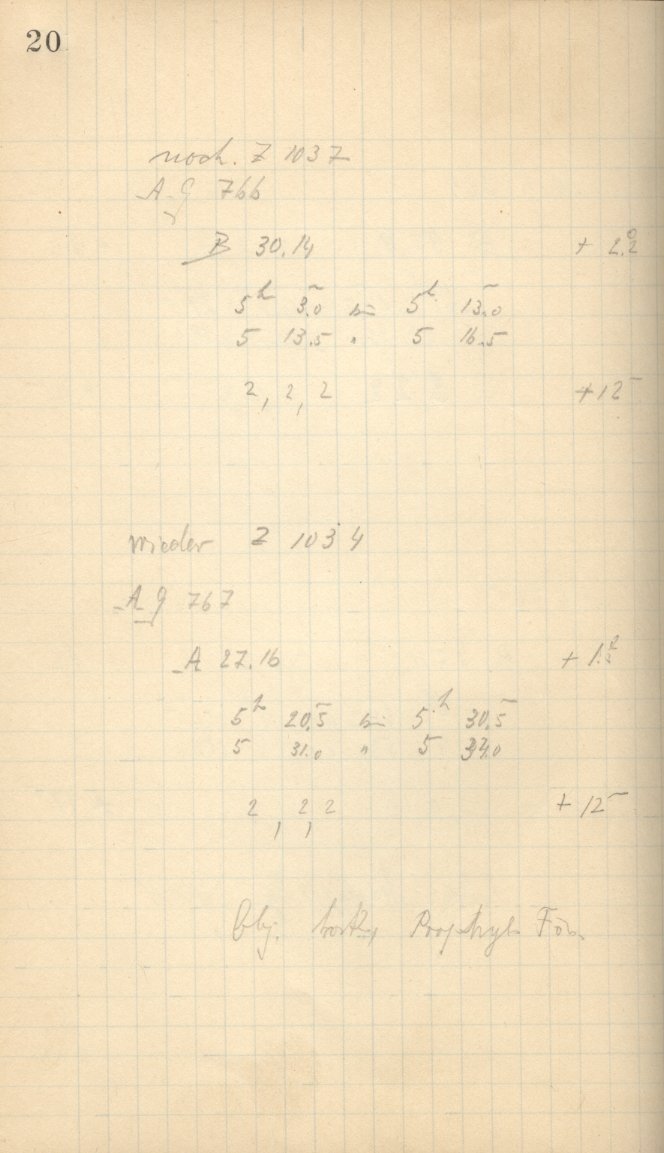 20
noch. Z 1037
A G 766
B 30.14 + 2.°2
5h 3.0 bis 5h 13.0
5 13.5 " 5 16.5
2, 2, 2 + 12
wieder Z 1034
A G 767
A 27.16 + 1.°
5h 20.5 bis 5h 30.5
5 31.0 " 5 34.0
2, 2, 2 + 12
Obj.